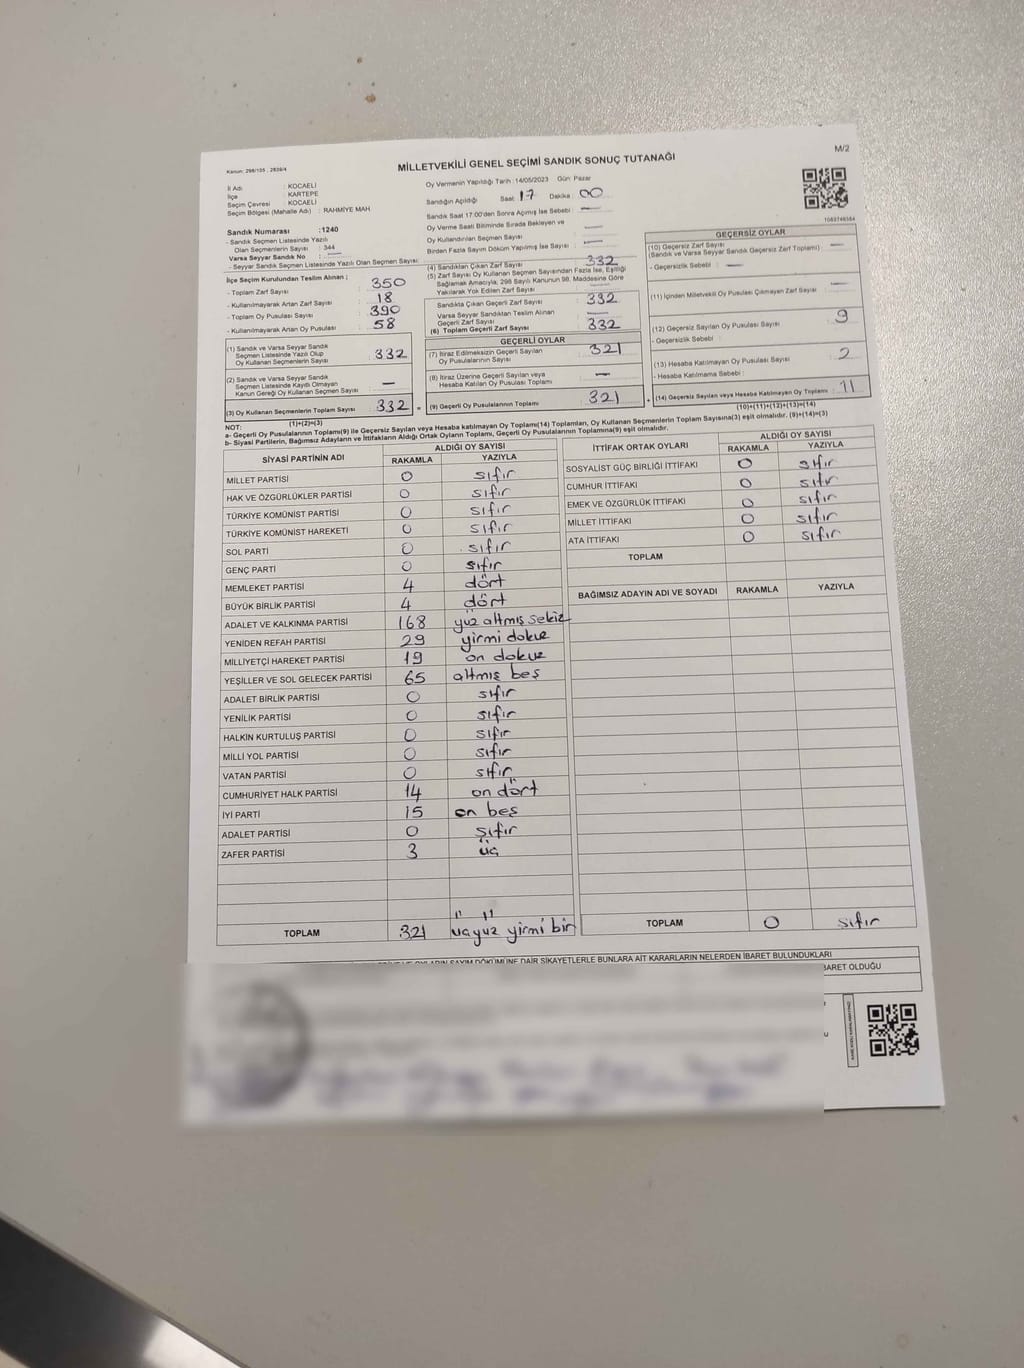 M/2
Kanun: 298/105 , 2839/4
MİLLETVEKİLİ GENEL SEÇİMİ SANDIK SONUÇ TUTANAĞI
İl Adı : KOCAELİ
İlçe : KARTEPE
Seçim Çevresi : KOCAELİ
Seçim Bölgesi (Mahalle Adı) : RAHMİYE MAH
Sandık Numarası :1240
- Sandık Seçmen Listesinde Yazılı
Olan Seçmenlerin Sayısı : 344
Varsa Seyyar Sandık No : —
- Seyyar Sandık Seçmen Listesinde Yazılı Olan Seçmen Sayısı:
Oy Vermenin Yapıldığı Tarih :14/05/2023 Gün: Pazar
Sandığın Açıldığı Saat: 17 Dakika: 00
Sandık Saat 17:00'den Sonra Açılmış İse Sebebi : —
Oy Verme Saati Bitiminde Sırada Bekleyen ve
Oy Kullandırılan Seçmen Sayısı : —
Birden Fazla Sayım Döküm Yapılmış İse Sayısı : —
1083746364
İlçe Seçim Kurulundan Teslim Alınan ;
- Toplam Zarf Sayısı : 350
- Kullanılmayarak Artan Zarf Sayısı : 18
- Toplam Oy Pusulası Sayısı : 390
- Kullanılmayarak Artan Oy Pusulası : 58
(1) Sandık ve Varsa Seyyar Sandık
Seçmen Listesinde Yazılı Olup
Oy Kullanan Seçmenlerin Sayısı : 332
(2) Sandık ve Varsa Seyyar Sandık
Seçmen Listesinde Kayıtlı Olmayan
Kanun Gereği Oy Kullanan Seçmen Sayısı : —
(3) Oy Kullanan Seçmenlerin Toplam Sayısı : 332
(1)+(2)=(3)
(4) Sandıktan Çıkan Zarf Sayısı : 332
(5) Zarf Sayısı Oy Kullanan Seçmen Sayısından Fazla İse, Eşitliği
Sağlamak Amacıyla; 298 Sayılı Kanunun 98. Maddesine Göre
Yakılarak Yok Edilen Zarf Sayısı : —
Sandıkta Çıkan Geçerli Zarf Sayısı : 332
Varsa Seyyar Sandıktan Teslim Alınan
Geçerli Zarf Sayısı : —
(6) Toplam Geçerli Zarf Sayısı : 332
GEÇERLİ OYLAR
(7) İtiraz Edilmeksizin Geçerli Sayılan
Oy Pusulalarının Sayısı : 321
(8) İtiraz Üzerine Geçerli Sayılan veya
Hesaba Katılan Oy Pusulası Toplamı : —
(9) Geçerli Oy Pusulalarının Toplamı : 321
GEÇERSİZ OYLAR
(10) Geçersiz Zarf Sayısı : —
(Sandık ve Varsa Seyyar Sandık Geçersiz Zarf Toplamı)
- Geçersizlik Sebebi : —
(11) İçinden Milletvekili Oy Pusulası Çıkmayan Zarf Sayısı : —
(12) Geçersiz Sayılan Oy Pusulası Sayısı : 9
- Geçersizlik Sebebi :
(13) Hesaba Katılmayan Oy Pusulası Sayısı : 2
- Hesaba Katılmama Sebebi :
(14) Geçersiz Sayılan veya Hesaba Katılmayan Oy Toplamı : 11
(10)+(11)+(12)+(13)=(14)
NOT:
a- Geçerli Oy Pusulalarının Toplamı(9) ile Geçersiz Sayılan veya Hesaba katılmayan Oy Toplamı(14) Toplamları, Oy Kullanan Seçmenlerin Toplam Sayısına(3) eşit olmalıdır. (9)+(14)=(3)
b- Siyasi Partilerin, Bağımsız Adayların ve İttifakların Aldığı Ortak Oyların Toplamı, Geçerli Oy Pusulalarının Toplamına(9) eşit olmalıdır.
SİYASİ PARTİNİN ADI ALDIĞI OY SAYISI
RAKAMLA YAZIYLA
MİLLET PARTİSİ 0 sıfır
HAK VE ÖZGÜRLÜKLER PARTİSİ 0 sıfır
TÜRKİYE KOMÜNİST PARTİSİ 0 sıfır
TÜRKİYE KOMÜNİST HAREKETİ 0 sıfır
SOL PARTİ 0 sıfır
GENÇ PARTİ 0 sıfır
MEMLEKET PARTİSİ 4 dört
BÜYÜK BİRLİK PARTİSİ 4 dört
ADALET VE KALKINMA PARTİSİ 168 yüz altmış sekiz
YENİDEN REFAH PARTİSİ 29 yirmi dokuz
MİLLİYETÇİ HAREKET PARTİSİ 19 on dokuz
YEŞİLLER VE SOL GELECEK PARTİSİ 65 altmış beş
ADALET BİRLİK PARTİSİ 0 sıfır
YENİLİK PARTİSİ 0 sıfır
HALKIN KURTULUŞ PARTİSİ 0 sıfır
MİLLİ YOL PARTİSİ 0 sıfır
VATAN PARTİSİ 0 sıfır
CUMHURİYET HALK PARTİSİ 14 on dört
İYİ PARTİ 15 on beş
ADALET PARTİSİ 0 sıfır
ZAFER PARTİSİ 3 üç
TOPLAM 321 üçyüz yirmi bir
İTTİFAK ORTAK OYLARI ALDIĞI OY SAYISI
RAKAMLA YAZIYLA
SOSYALİST GÜÇ BİRLİĞİ İTTİFAKI 0 sıfır
CUMHUR İTTİFAKI 0 sıfır
EMEK VE ÖZGÜRLÜK İTTİFAKI 0 sıfır
MİLLET İTTİFAKI 0 sıfır
ATA İTTİFAKI 0 sıfır
TOPLAM
BAĞIMSIZ ADAYIN ADI VE SOYADI RAKAMLA YAZIYLA
TOPLAM 0 sıfır
SAYIM DÖKÜMÜNE DAİR ŞİKAYETLERLE BUNLARA AİT KARARLARIN NELERDEN İBARET BULUNDUKLARI
OLDUĞU